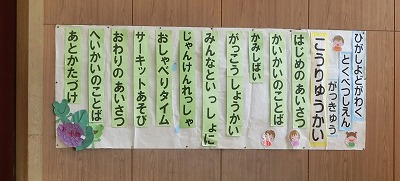 ひがしよどがわく
とくべつしえん
がっきゅう
こうりゅうかい
はじめの あいさつ
かいかいのことば
かみしばい
がっこう しょうかい
みんなといっ しょに
じゃんけんれっしゃ
おしゃべりタイム
サーキットあそび
おわりの あいさつ
へいかいのことば
あとかたづけ